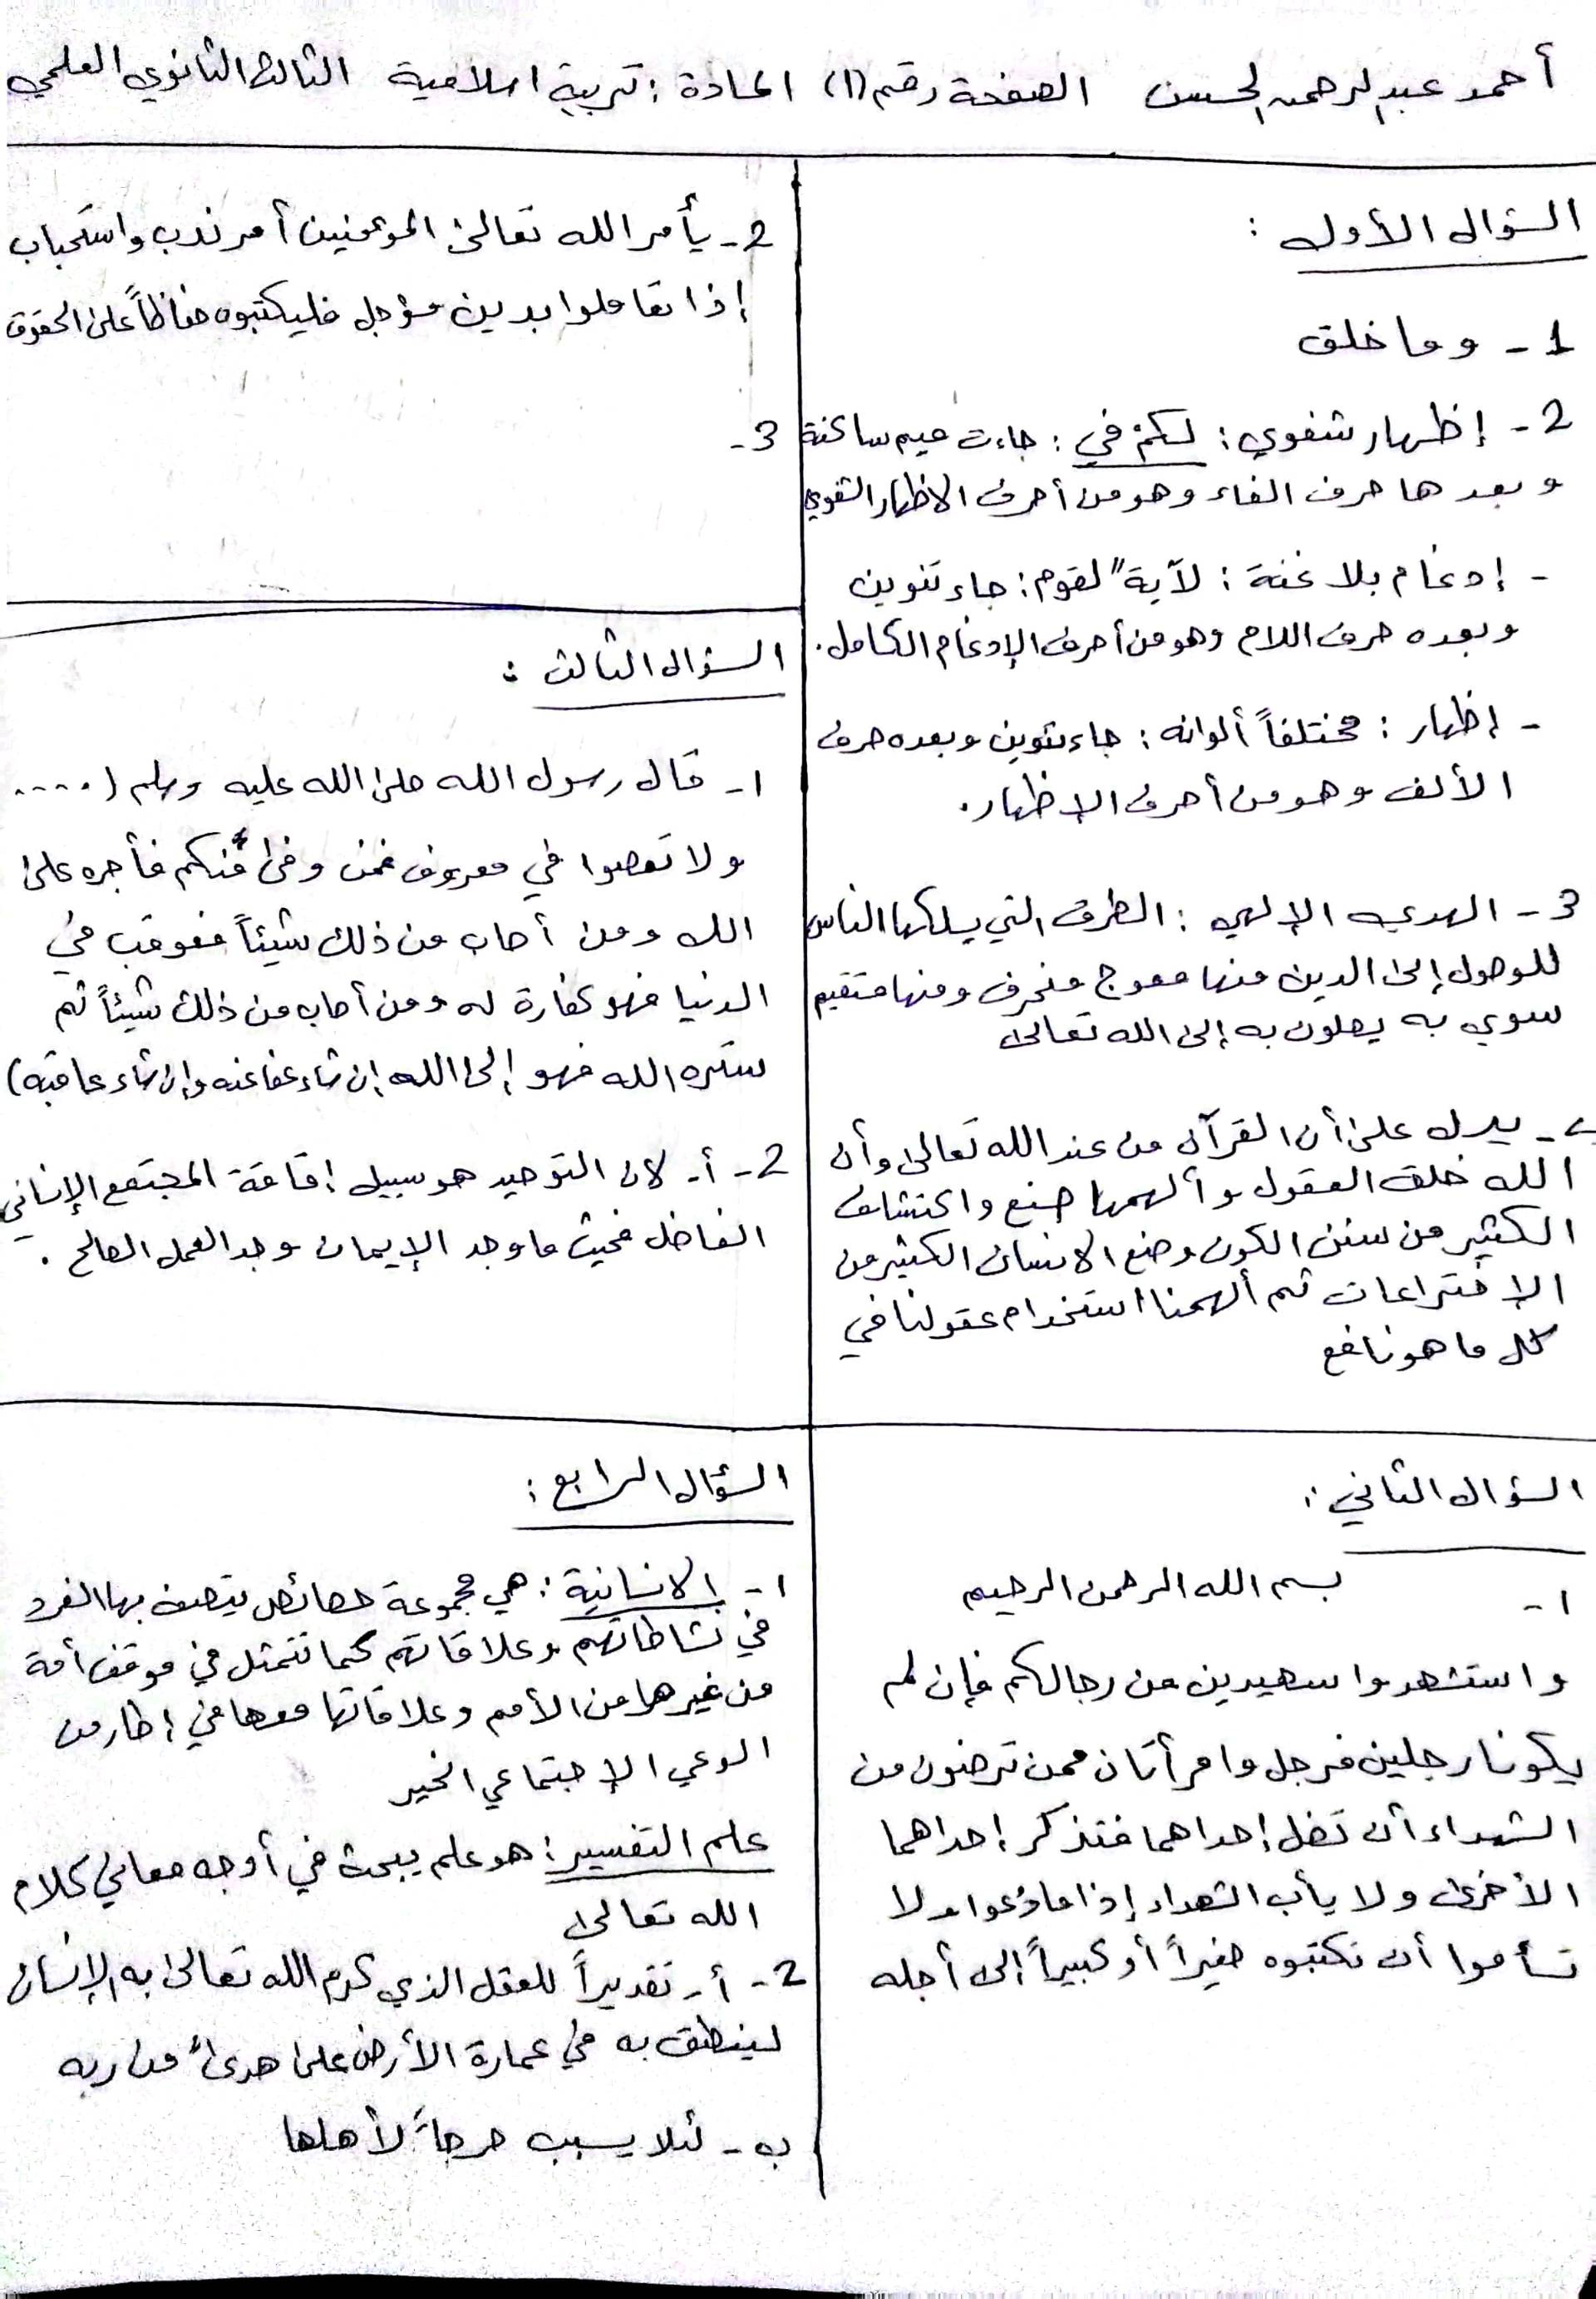 أحمد عبدالرحمن الحسن الصفحة رقم (١) المادة : تربية اسلامية الثالث الثانوي العلمي
السؤال الأول :
1 - وما خلق
2 - إظهار شفوي : لكمْ في : جاءت ميم ساكنة
وبعدها حرف الفاء وهو من أحرف الاظهار الشفوي
- إدغام بلا غنة : لآيةً لقوم : جاء تنوين
وبعده حرف اللام وهو من أحرف الإدغام الكامل .
- إظهار : مختلفاً ألوانه : جاء تنوين وبعده حرف
الألف وهو من أحرف الاظهار .
3 - الهدي الإلهي : الطرق التي يسلكها الناس
للوصول إلى الدين منها معوج منحرف ومنها مستقيم
سوي به يصلون به إلى الله تعالى
- يدل على أن القرآن من عند الله تعالى وأن
الله خلق العقول وألهمها صنع واكتشاف
الكثير من سنن الكون وصنع الانسان الكثير من
الاختراعات ثم ألهمنا استخدام عقولنا في
كل ما هو نافع
السؤال الثاني :
١ - بسم الله الرحمن الرحيم
واستشهدوا سهيدين من رجالكم فإن لم
يكونا رجلين فرجل وامرأتان ممن ترضون من
الشهداء أن تضل إحداهما فتذكر إحداهما
الأخرى ولا يأب الشهداء إذا ما دُعوا ولا
تسأموا أن تكتبوه صغيراً أو كبيراً إلى أجله
2 - يأمر الله تعالى المؤمنين أمر ندب واستحباب
إذا تعاملوا بدين مؤجل فليكتبوه حفاظاً على الحقوق
3 -
السؤال الثالث :
١ - قال رسول الله صلى الله عليه وسلم ( ....
ولا تعصوا في معروف فمن وفى منكم فأجره على
الله ومن أصاب من ذلك شيئاً فعوقب في
الدنيا فهو كفارة له ومن أصاب من ذلك شيئاً ثم
ستره الله فهو إلى الله إن شاء عفا عنه وإن شاء عاقبه )
2 - أ - لان التوحيد هو سبيل إقامة المجتمع الإنساني
الفاضل فحيث ما وجد الإيمان وجد العمل الصالح .
السؤال الرابع :
١ - الانسانية : هي مجموعة خصائص يتصف بها الفرد
في نشاطاتهم وعلاقاتهم كما تتمثل في موقف أمة
من غيرها من الأمم وعلاقاتها معها في إطار من
الوعي الإجتماعي الخير
علم التفسير : هو علم يبحث في أوجه معاني كلام
الله تعالى
2 - أ - تقديراً للعقل الذي كرم الله تعالى به الإنسان
لينطلق به في عمارة الأرض على هدىً من ربه
ب - لئلا يسبب حرجاً لأهلها